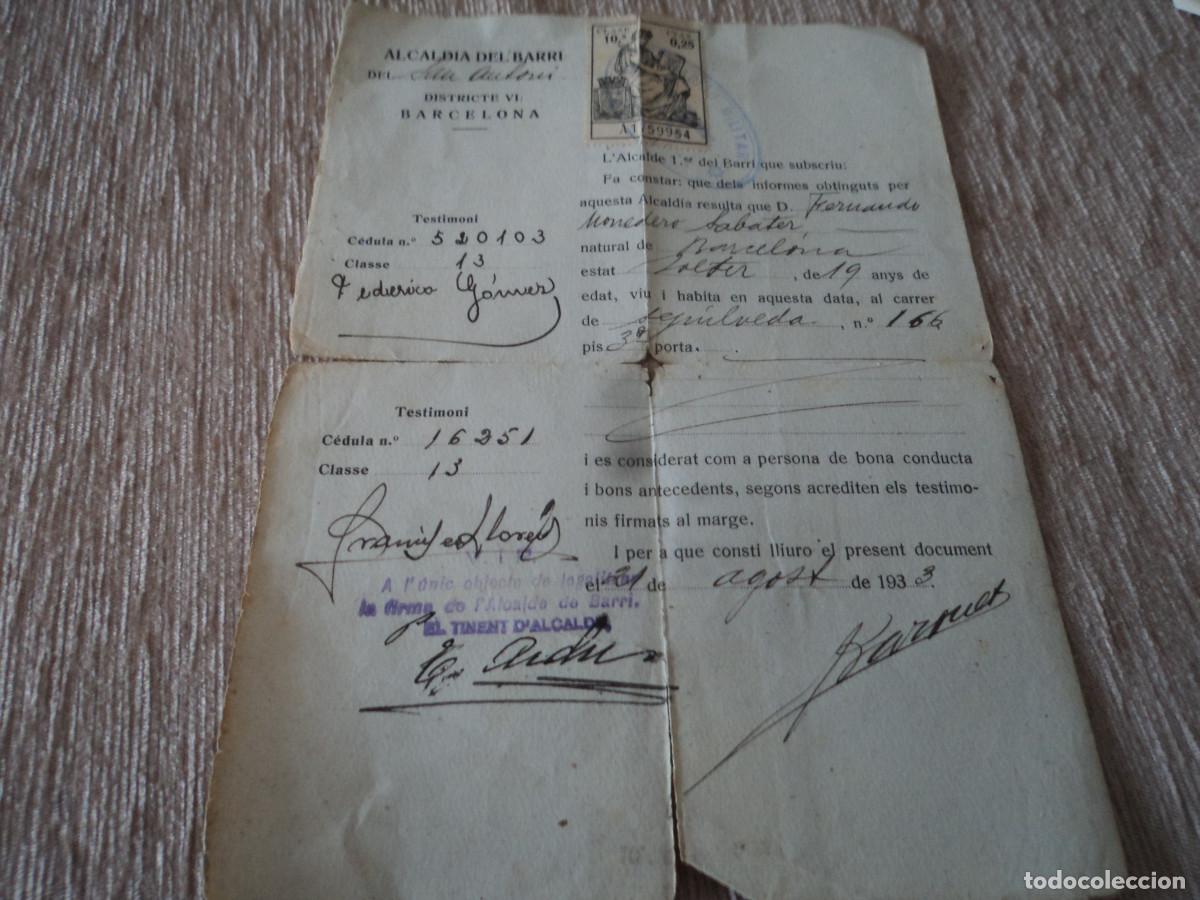 ALCALDIA DEL BARRI
DEL San Antoni
DISTRICTE VI.
BARCELONA
CLASE
10.ª 0,25
A1759954
MILITAR
L'Alcalde 1.er del Barri que subscriu:
Fa constar: que dels informes obtinguts per
aquesta Alcaldía resulta que D. Fernando
Monedero Sabater
natural de Barcelona
estat Solter, de 19 anys de
edat, viu i habita en aquesta data, al carrer
de Sepúlveda, n.º 166
pis 3º porta.
Testimoni
Cédula n.º 520103
Classe 13
Federico Gómez
Testimoni
Cédula n.º 16251
Classe 13
i es considerat com a persona de bona conducta
i bons antecedents, segons acrediten els testimo-
nis firmats al marge.
I per a que consti lliuro el present document
el 21 de agost de 1933.
A l'únic objecte de legalitzar
la firma de l'Alcalde de Barri.
EL TINENT D'ALCALDE,
todocoleccion